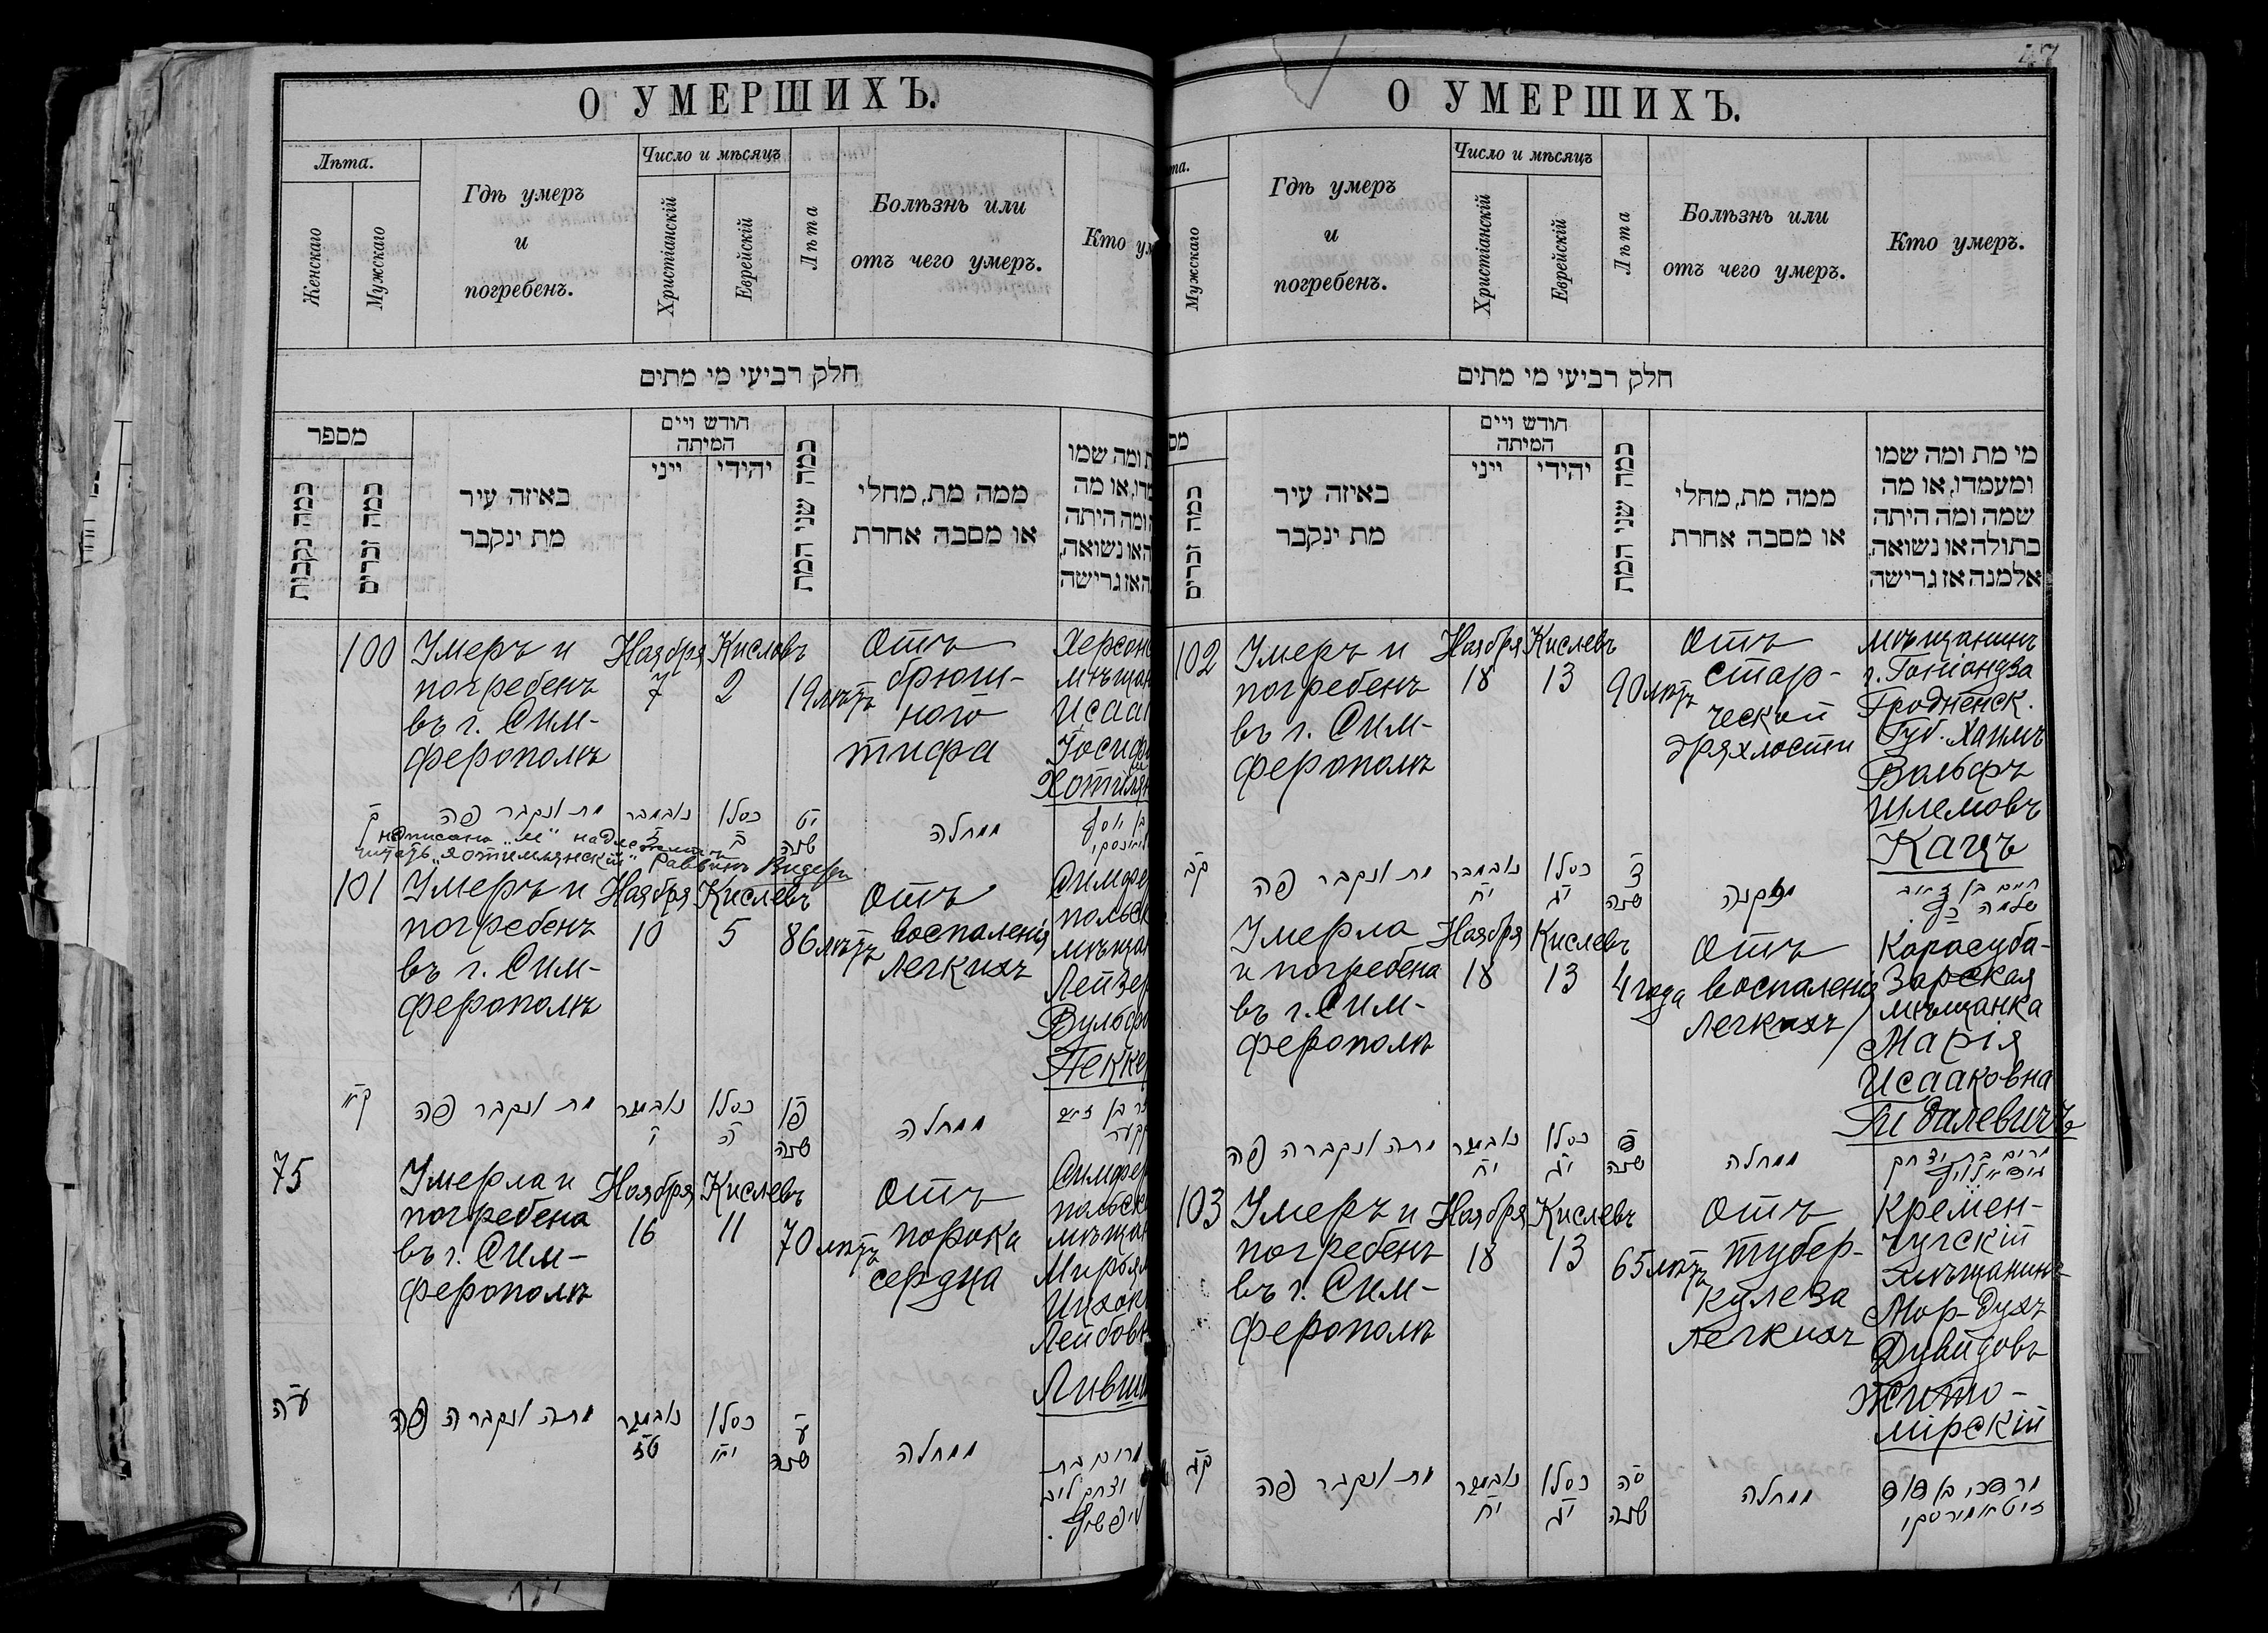 О УМЕРШИХЪ.
Лѣта.
Женскаго
Мужскаго
Гдѣ умеръ
и
погребенъ.
Число и мѣсяцъ
Христіанскій
Еврейскій
Лѣта
Болѣзнь или
отъ чего умеръ.
Кто ум
חלק רביעי מי מתים
מספר
כמה נקבות
כמה זכרים
באיזה עיר
מת ינקבר
חודש ויים
המיתה
ייני
יהידי
כמה שני המת
ממה מת, מחלי
או מסבה אחרת
ת ומה שמו
מדו, או מה
ומה היתה
ה או נשואה,
ה אז גרישה
100
Умеръ и
погребенъ
въ г. Сим-
ферополѣ
Ноября
7
Кислевъ
2
19 лѣтъ
Отъ
брюш-
ного
тифа
Херсон
мѣщан
Исаак
Іосиф
Хотимлян
ק
מת ונקבר פה
נאבמבר
ז
כסלו
ב
יט
שנה
ממחלה
בן יוסף
надписано „м" над
читать „Хотимлянскій" Раввинъ
101
Умеръ и
погребенъ
въ г. Сим-
ферополѣ
Ноября
10
Кислевъ
5
86 лѣтъ
Отъ
воспаленія
легкихъ
Симфер
польск
мѣщан
Лейзер
Вульфо
Пеккер
קא
מת ונקבר פה
נאבמבר
י
כסלו
ה
פו
שנה
ממחלה
75
Умерла и
погребена
въ г. Сим-
ферополѣ
Ноября
16
Кислевъ
11
70 лѣтъ
Отъ
порока
сердца
Симфер
польска
мѣщан
Мирьям
Ицхок
Лейбовн
Ливши
עה
מתה ונקברה פה
נאבמבר
טז
כסלו
יא
ע
שנה
ממחלה
מרים בת
יצחק ליב
ליפשיץ.
47
О УМЕРШИХЪ.
та.
Мужскаго
Гдѣ умеръ
и
погребенъ.
Число и мѣсяцъ
Христіанскій
Еврейскій
Лѣта
Болѣзнь или
отъ чего умеръ.
Кто умеръ.
חלק רביעי מי מתים
מס
כמה זכרים
באיזה עיר
מת ינקבר
חודש ויים
המיתה
ייני
יהידי
כמה שני המת
ממה מת, מחלי
או מסבה אחרת
מי מת ומה שמו
ומעמדו, או מה
שמה ומה היתה
בתולה או נשואה,
אלמנה אז גרישה
102
Умеръ и
погребенъ
въ г. Сим-
ферополѣ
Ноября
18
Кислевъ
13
90 лѣтъ
Отъ
стар-
ческой
дряхлости
мѣщанинъ
г. Гоніондза
Гродненск.
Губ. Хаимъ
Вольфъ
Шлемовъ
Кацъ
קב
מת ונקבר פה
נאבמבר
יח
כסלו
יג
צ
שנה
מזקנה
חיים בן זאב
שלמה כץ.
Умерла
и погребена
въ г. Сим-
ферополѣ
Ноября
18
Кислевъ
13
4 года
Отъ
воспаленія
легкихъ
Карасуба-
зарская
мѣщанка
Марія
Исааковна
Гидалевичъ
מתה ונקברה פה
נאבמבר
יח
כסלו
יג
ד
שנה
ממחלה
מרים בת יצחק
103
Умеръ и
погребенъ
въ г. Сим-
ферополѣ
Ноября
18
Кислевъ
13
65 лѣтъ
Отъ
тубер-
кулеза
легкихъ
Кремен-
чугскій
мѣщанинъ
Мор-духъ
Дувидовъ
Жито-
мірскій
קג
מת ונקבר פה
נאבמבר
יח
כסלו
יג
סה
שנה
ממחלה
מרדכי בן דוד
זיטאמירסקי